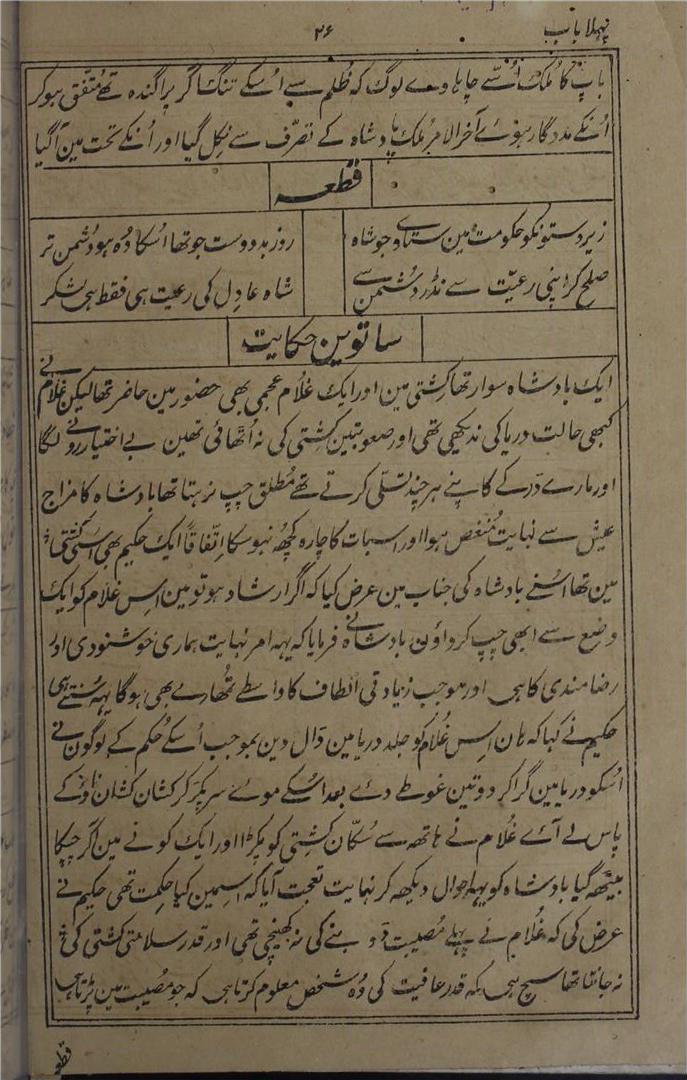 پہلا باب
۲۶
باپ کا ملک اُنسے چاہا وے لوگ کہ ظلم سے اُسکے تنگ آکر پراگندہ تھے متفق ہوکر
اُنکے مددگار ہوئے آخر الامر ملک پادشاہ کے تصرّف سے نکل گیا اور اُنکے تحت مین آگیا
قطعہ
زیردستونکو حکومت مین ستاوے جو شاہ
روز بد دوست جو تھا اُسکا وُہ ہو دشمن تر
صلح کر اپنی رعیّت سے نڈر دشمن سے
شاہ عادل کی رعیت ہی فقط ہی لشکر
ساتوین حکایت
ایک بادشاہ سوار تھا کشتی مین اور ایک غلام عجمی بھی حضور مین حاضر تھا لیکن غلام نے
کبھی حالت دریا کی ندیکھی تھی اور صعوبتین کشتی کی نہ اُٹھائی تھین بے اختیار رونے لگا
اور مارے ڈر کے کانپنے ہر چند تسلّی کرتے تھے مطلق چپ نرہتا تھا بادشاہ کا مزاج
عیش سے نہایت منغص ہوا اور اسبات کا چارہ کچھ نہوسکا اتّفاقاً ایک حکیم بھی اسی کشتی
مین تھا اُسنے بادشاہ کی جناب مین عرض کیا کہ اگر ارشاد ہو تو مین اِس غلام کو ایک
وضع سے ابھی چپ کرواؤن بادشاہ نے فرمایا کہ یہہ امر نہایت ہماری خوشنودی اور
رضامندی کا ہی اور موجب زیادتی الطاف کا واسطے تُمھارے بھی ہوگا یہہ سُنتے ہی
حکیم نے کہا کہ ہان اِس غُلام کو جلد دریا مین ڈال دین بموجب اُسکے حُکم کے لوگون نے
اُسکو دریا مین گرا کر دو تین غوطے دئے بعد اُسکے موئے سر پکڑ کر کشان کشان ناؤ کے
پاس لے آئے غُلام نے ہاتھہ سے سُکّان کشتی کو پکڑا اور ایک کونے مین آکر چپکا
بیٹھہ گیا بادشاہ کو یہہ احوال دیکھہ کر نہایت تعجب آیا کہ اسمین کیا حکمت تھی حکیم نے
عرض کی کہ غُلام نے پہلے مُصیبت ڈوبنے کی نہ کھینچی تھی اور قدر سلامتی کشتی کی
نہ جانتا تھا سچ ہی کہ قدر عافیت کی وُہ شخص معلوم کرتا ہی کہ جو مُصیبت مین پڑتا ہی
قطعہ